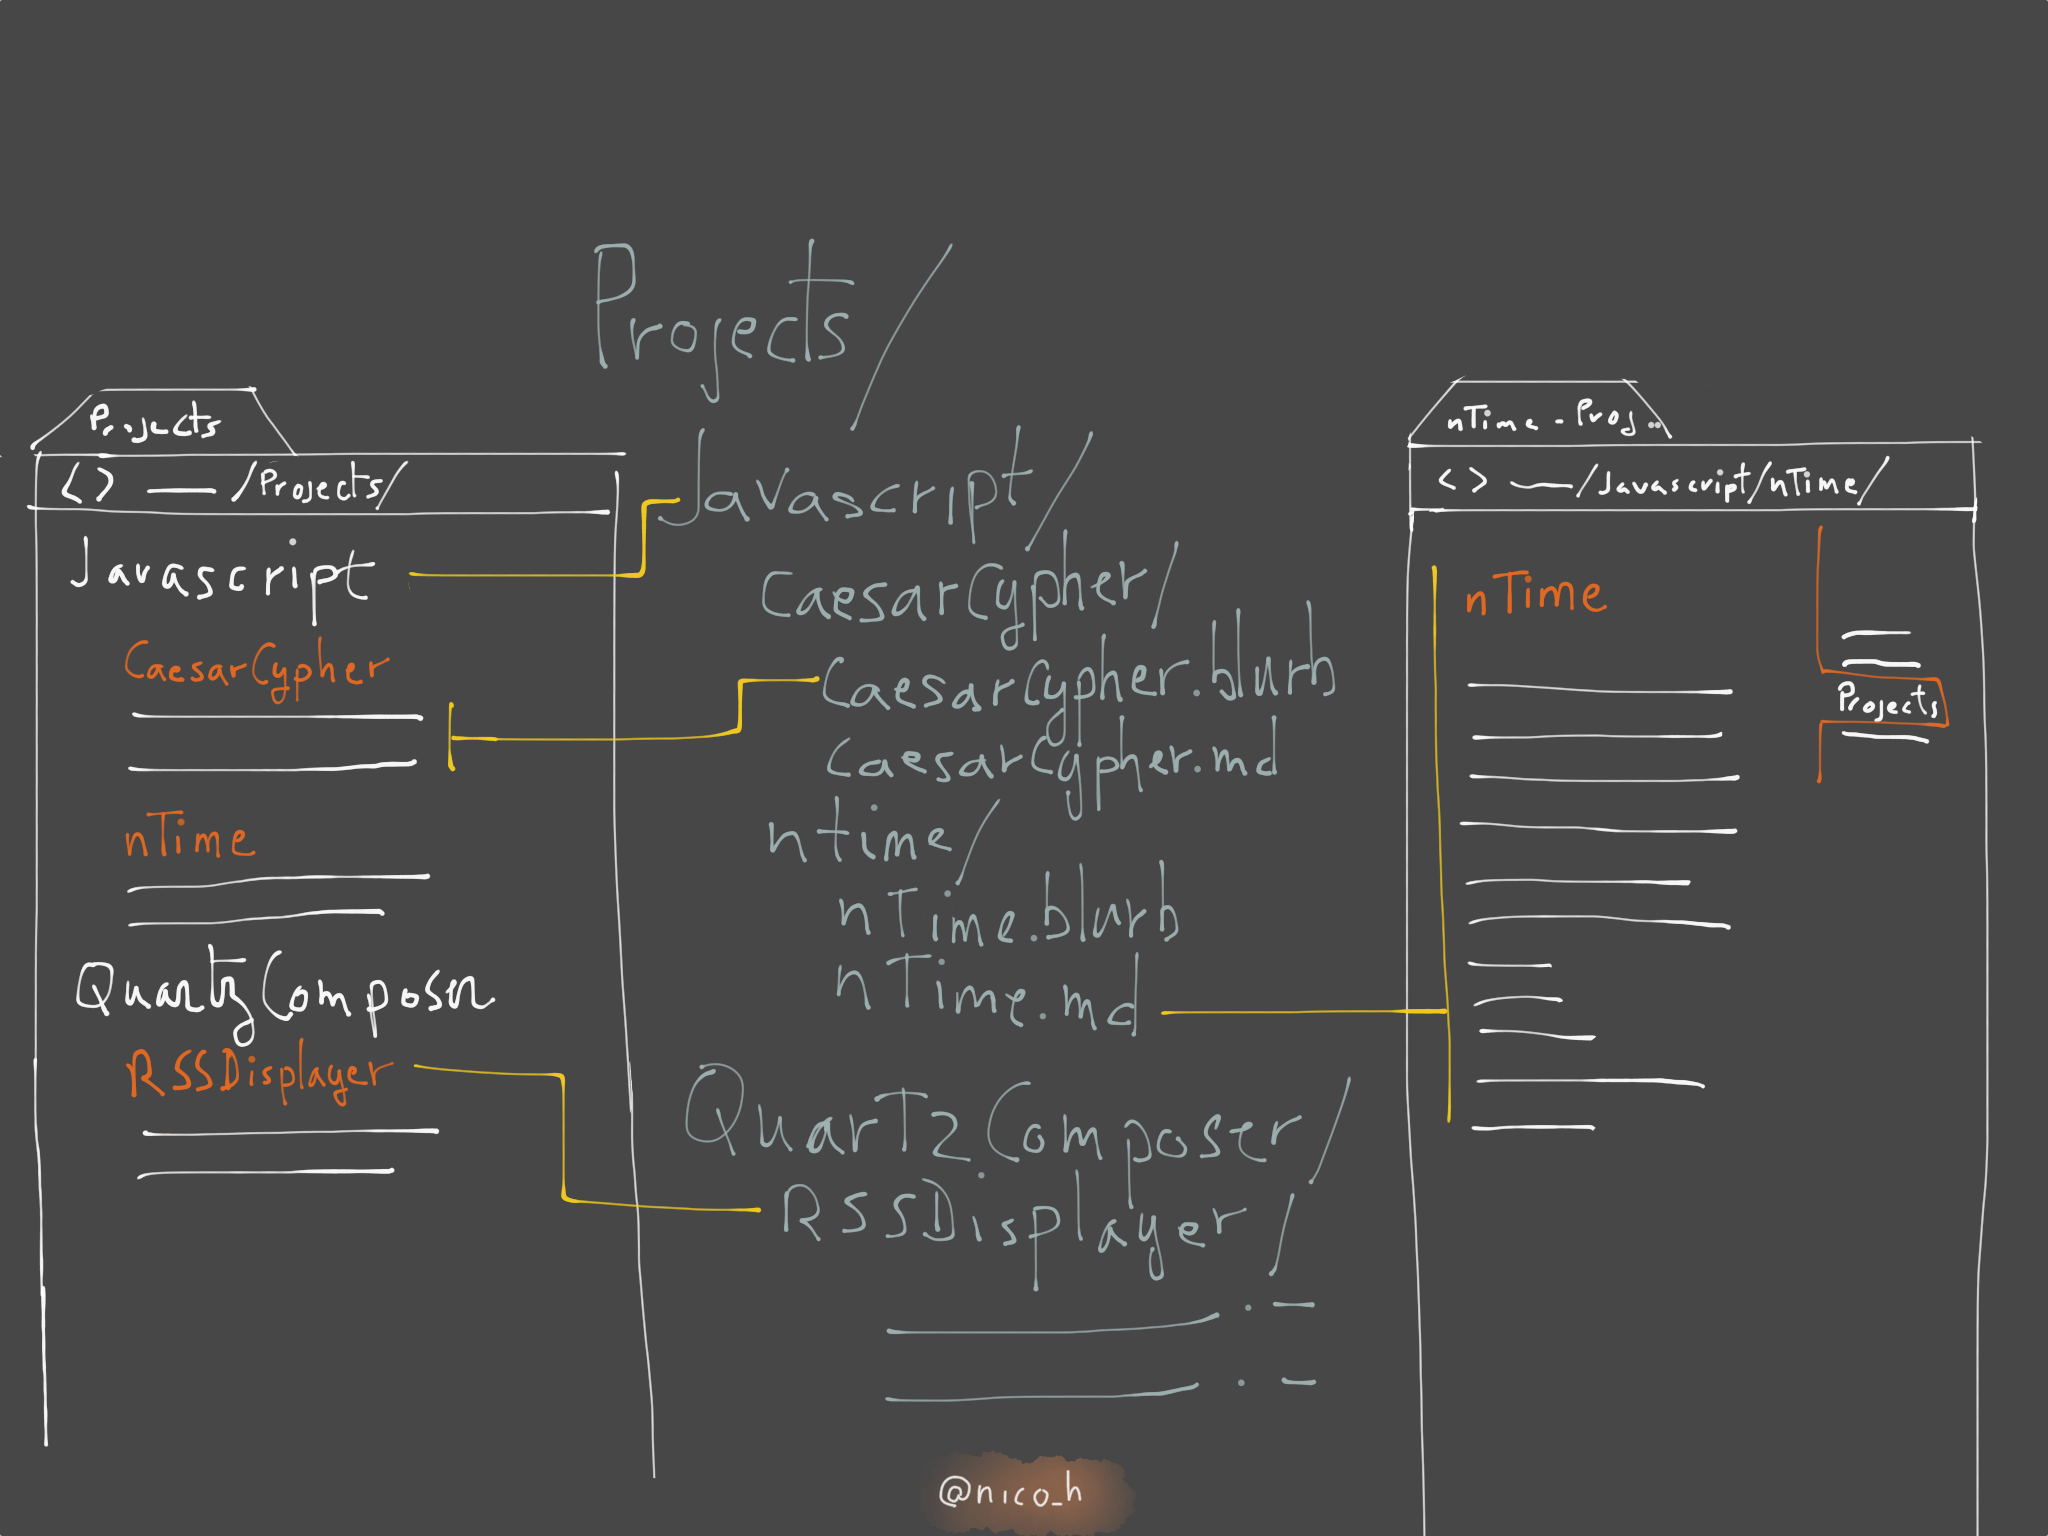 Projects
<> /Projects/
Javascript
CaesarCypher
nTime
QuartzComposer
RSSDisplayer
Projects/
Javascript/
CaesarCypher/
CaesarCypher.blurb
CaesarCypher.md
ntime/
nTime.blurb
nTime.md
QuartzComposer/
RSSDisplayer/
nTime - Proj..
<> /Javascript/nTime/
nTime
Projects
@nico_h